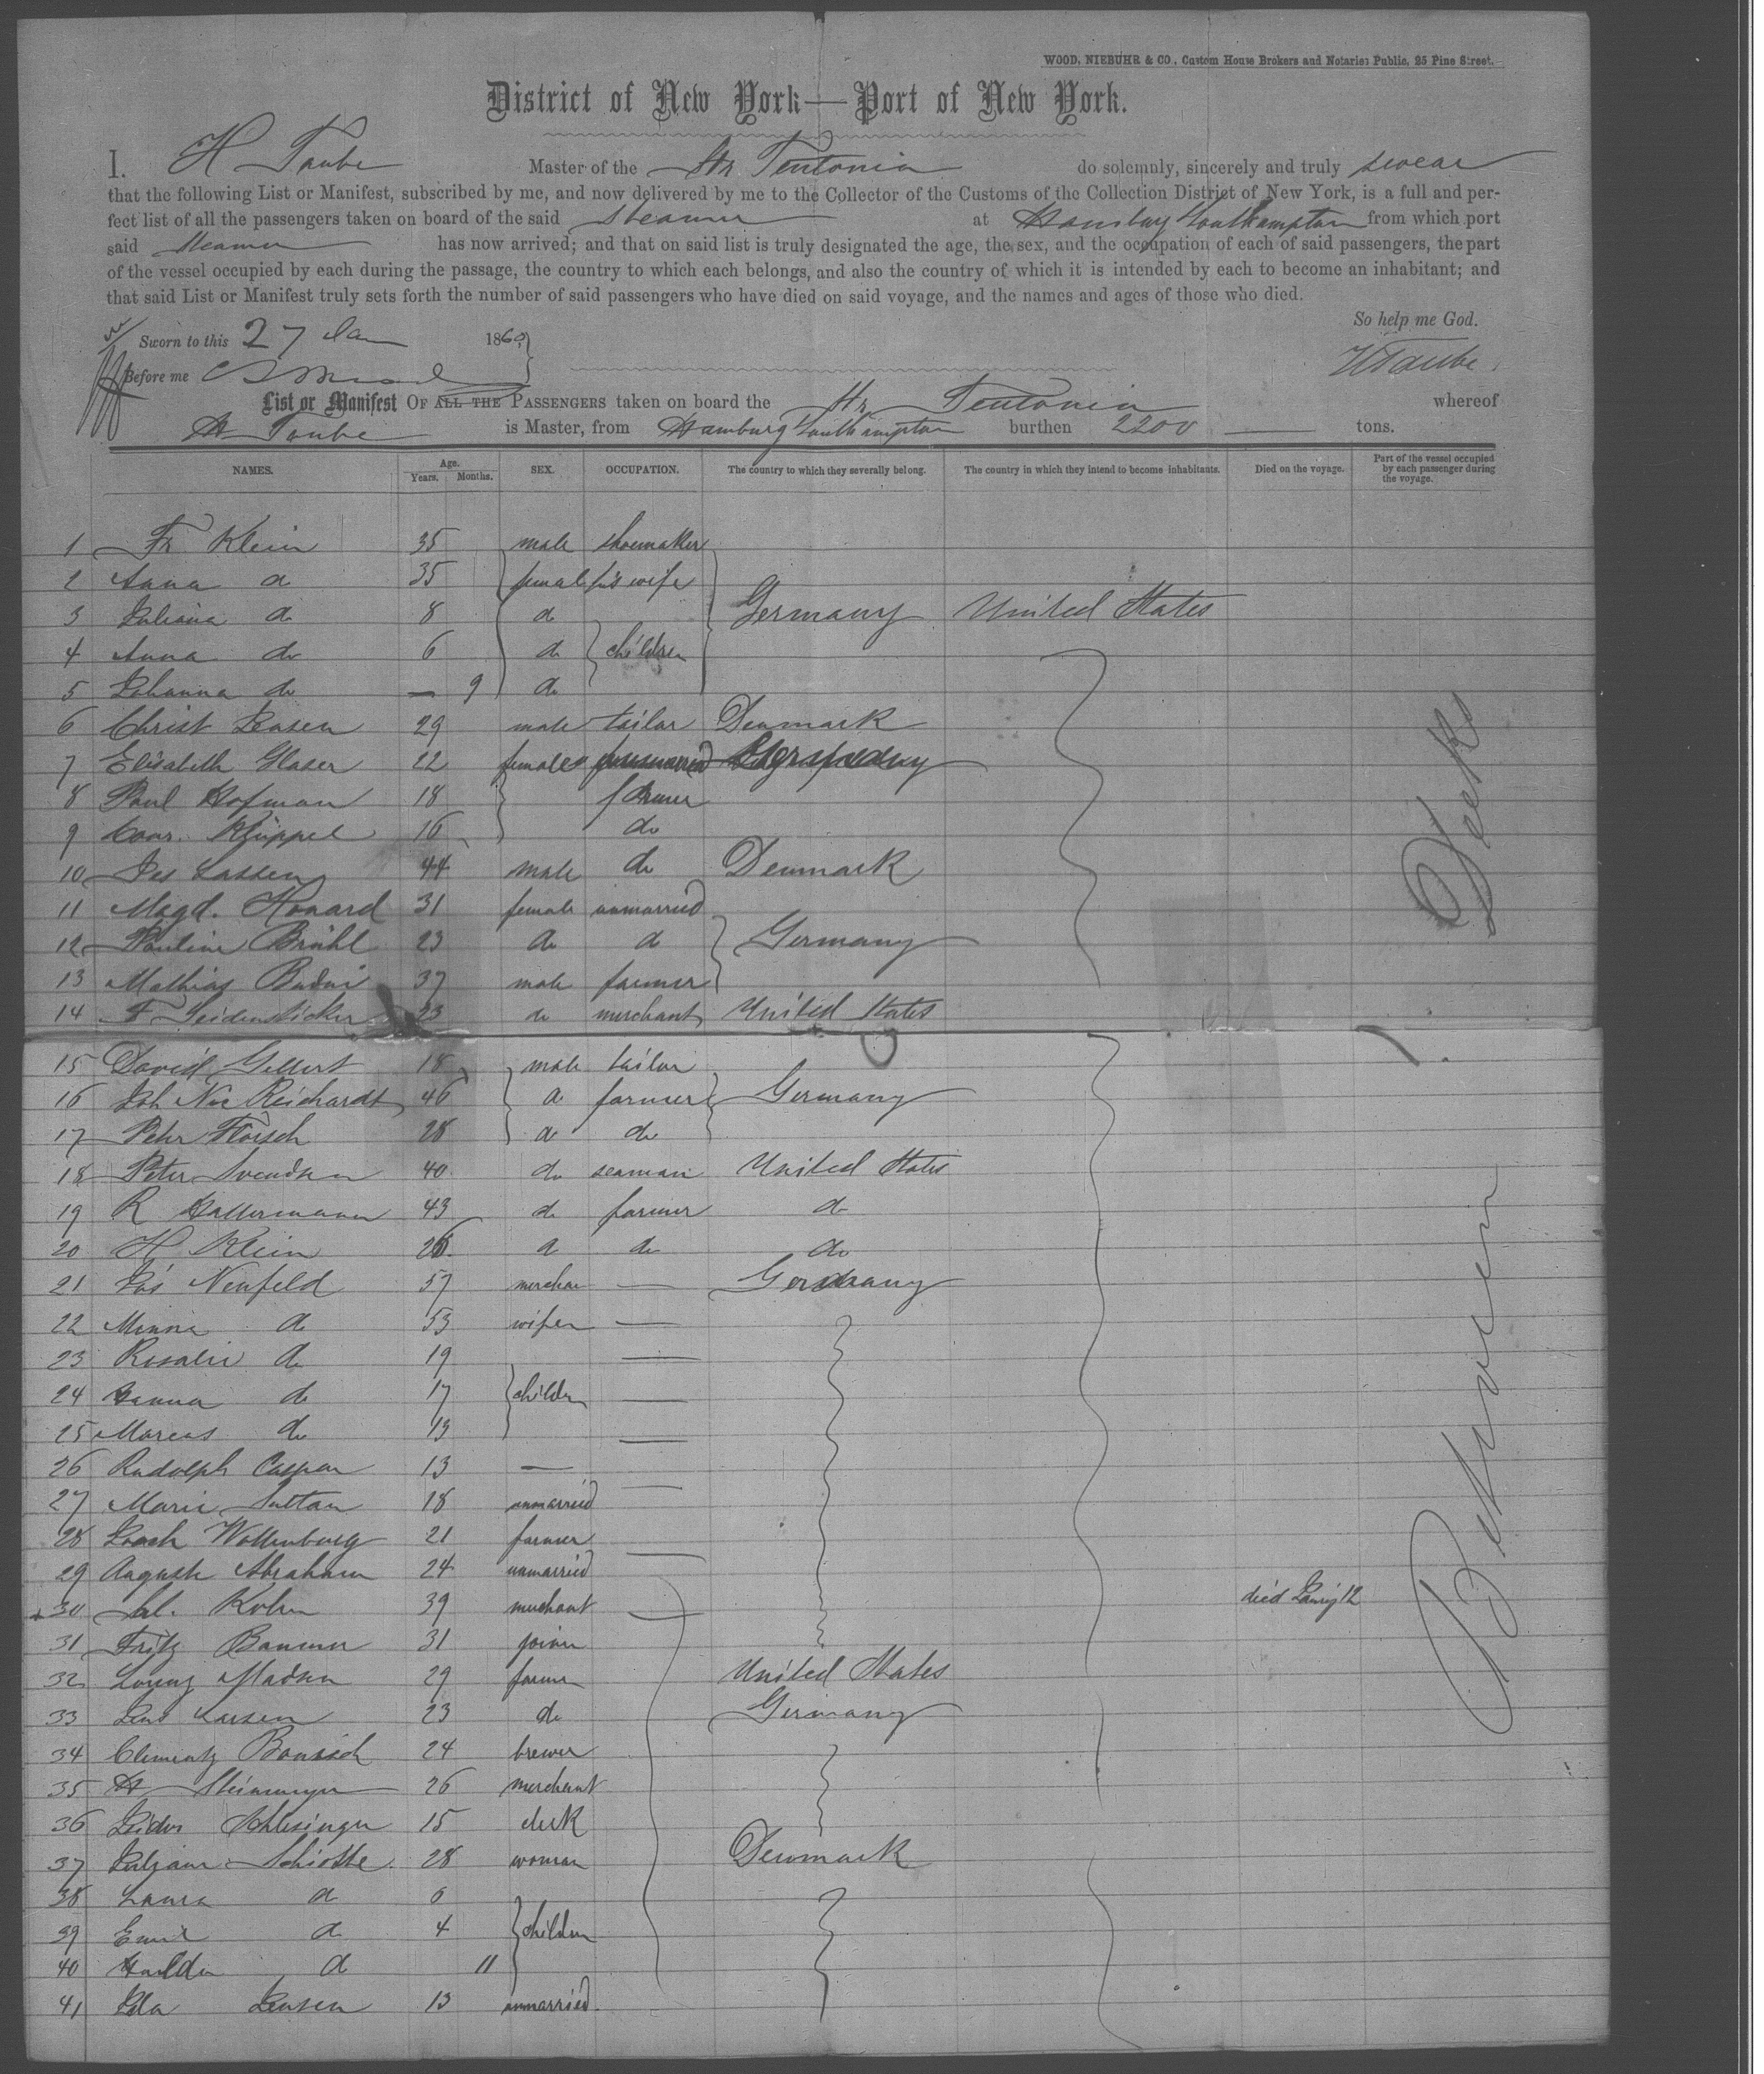 WOOD, NIEBUHR & CO., Custom House Brokers and Notaries Public, 25 Pine Street.
District of New York—Port of New York.
I. H Taube Master of the Str Teutonia do solemnly, sincerely and truly swear
that the following List or Manifest, subscribed by me, and now delivered by me to the Collector of the Customs of the Collection District of New York, is a full and per-
fect list of all the passengers taken on board of the said Steamer at Hamburg Southampton from which port
said Steamer has now arrived; and that on said list is truly designated the age, the sex, and the occupation of each of said passengers, the part
of the vessel occupied by each during the passage, the country to which each belongs, and also the country of which it is intended by each to become an inhabitant; and
that said List or Manifest truly sets forth the number of said passengers who have died on said voyage, and the names and ages of those who died.
So help me God.
Sworn to this 27 Jan 186
HTaube.
Before me
List or Manifest OF ALL THE PASSENGERS taken on board the Str Teutonia whereof
H Taube is Master, from Hamburg Southampton burthen 2200 tons.
NAMES. Age. Years. Months. SEX. OCCUPATION. The country to which they severally belong. The country in which they intend to become inhabitants. Died on the voyage. Part of the vessel occupied by each passenger during the voyage.
1 Fr Klein 35 male shoemaker
2 Anna do 35 female his wife
3 Juliana do 8 do Germany United States
4 Anna do 6 do children
5 Johanna do — 9 do
6 Christ Jensen 29 male tailor Denmark
7 Elisabeth Glaser 22 female
8 Paul Hofman 18 farmer
9 Klüppel 16 do
10 Jes Lassen 44 male do Denmark
11 Magd. Honard 31 female unmarried
12 Pauline Brühl 23 do do Germany
13 Mathias 37 male farmer
14 F Seidensticker 23 do merchant United States
15 David Gellert 18 male tailor
16 Joh Nic Reichardt 46 do farmer Germany
17 Peter Florsch 28 do do
18 Peter Svendsen 40 do seaman United States
19 R Hallermann 43 do farmer do
20 H Klein 26 do do do
21 Jos Neufeld 57 merchan — Germany
22 Minna do 53 wife —
23 Rosalie do 19 —
24 Hanna do 17 children —
25 Marcus do 13 —
26 Rudolph Caspar 13 — —
27 Marie Sultan 18 unmarried
28 Wollenburg 21 farmer —
29 Auguste Abraham 24 unmarried
30 Sal. Kohn 39 merchant — died 12
31 Fritz 31 joiner
32 Lorenz Madsen 29 farmer United States
33 Jens Larsen 23 do Germany
34 24 brewer
35 H Steinmeyer 26 merchant
36 Isidor Schlesinger 15 clerk
37 Schiotte 28 woman Denmark
38 Laura do 6
39 Emil do 4 children
40 do 11
41 Ida Jensen 13 unmarried.
Deck
Between